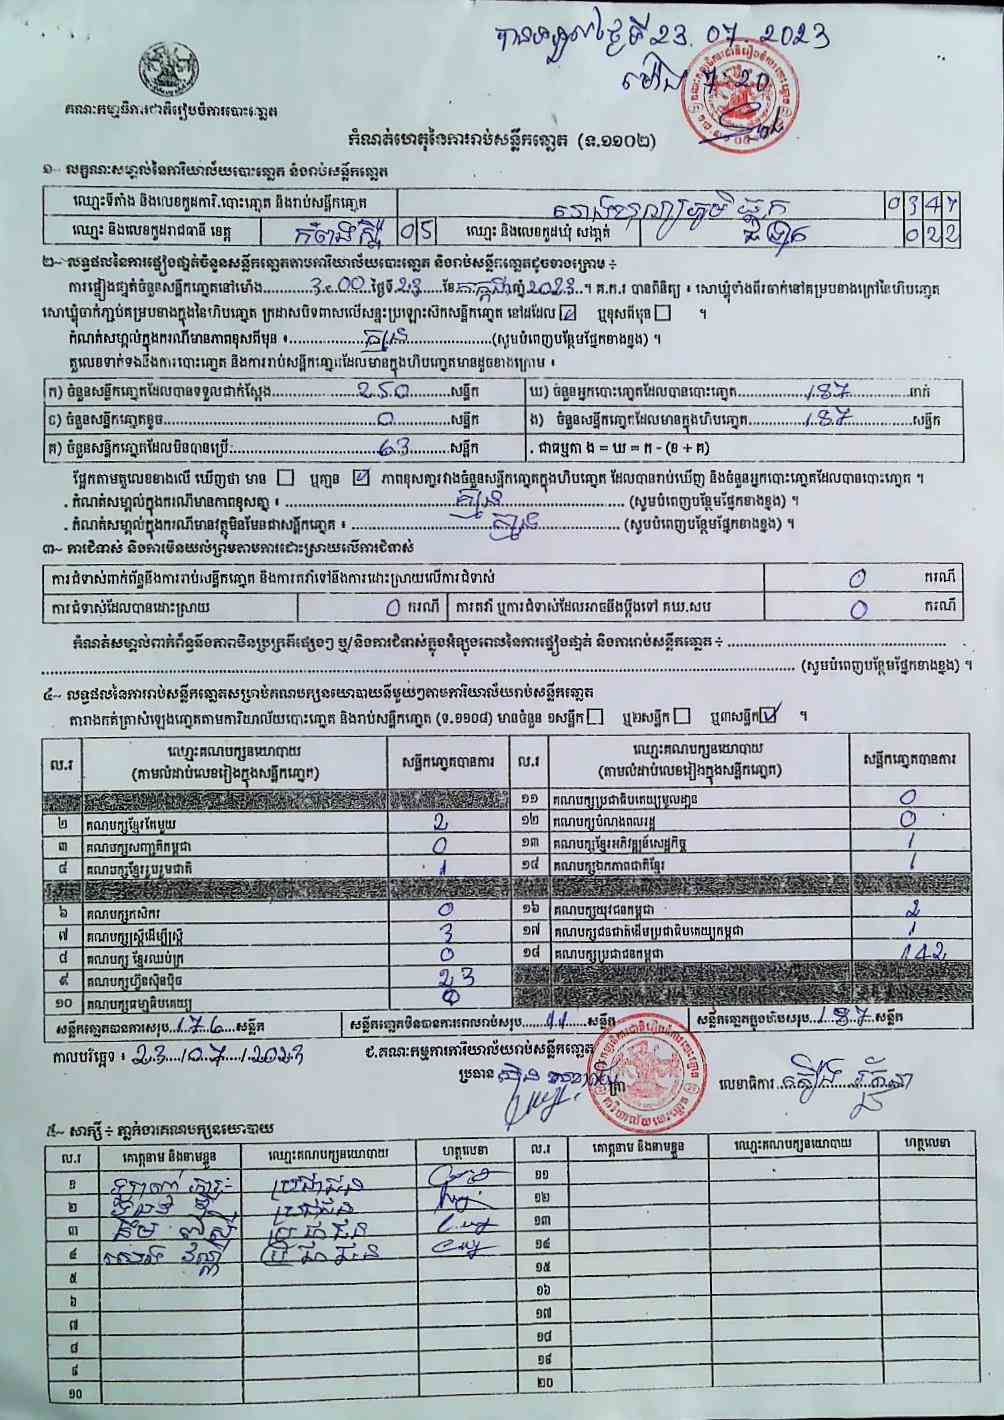 បានទទួលថ្ងៃទី 23.07.2023
ម៉ោង 7:20
គណៈកម្មាធិការជាតិរៀបចំការបោះឆ្នោត
កំណត់ហេតុនៃការរាប់សន្លឹកឆ្នោត (ទ.១១០២)
១~ លក្ខណៈសម្គាល់នៃការិយាល័យបោះឆ្នោត និងរាប់សន្លឹកឆ្នោត
ឈ្មោះទីតាំង និងលេខកូដការិ.បោះឆ្នោត និងរាប់សន្លឹកឆ្នោត 0347
ឈ្មោះ និងលេខកូដរាជធានី ខេត្ត កំពង់ស្ពឺ 05 ឈ្មោះ និងលេខកូដឃុំ សង្កាត់ 022
២~ លទ្ធផលនៃការផ្ទៀងផ្ទាត់ចំនួនសន្លឹកឆ្នោតតាមការិយាល័យបោះឆ្នោត និងរាប់សន្លឹកឆ្នោតដូចខាងក្រោម ÷
ការផ្ទៀងផ្ទាត់ចំនួនសន្លឹកឆ្នោតនៅម៉ោង 3:00 ថ្ងៃទី 23 ខែ កក្កដា ឆ្នាំ 2023 ។ គ.ក.រ បានពិនិត្យ ៖ សោឃ្លុំទាំងពីរចាក់នៅគម្របខាងក្រៅនៃហិបឆ្នោត
សោឃ្លុំចាក់ភ្ជាប់គម្របខាងក្នុងនៃហិបឆ្នោត ក្រដាសបិទពាសលើសន្ទះប្រឡោះស៊កសន្លឹកឆ្នោត នៅដដែល ☑ ឬខុសពីមុន ☐ ។
កំណត់សម្គាល់ក្នុងករណីមានភាពខុសពីមុន ៖ គ្មាន (សូមបំពេញបន្ថែមផ្នែកខាងខ្នង) ។
តួលេខទាក់ទងនឹងការបោះឆ្នោត និងការរាប់សន្លឹកឆ្នោតដែលមានក្នុងហិបឆ្នោតមានដូចខាងក្រោម ៖
ក) ចំនួនសន្លឹកឆ្នោតដែលបានទទួលជាក់ស្តែង 250 សន្លឹក ឃ) ចំនួនអ្នកបោះឆ្នោតដែលបានបោះឆ្នោត 187 នាក់
ខ) ចំនួនសន្លឹកឆ្នោតខូច 0 សន្លឹក ង) ចំនួនសន្លឹកឆ្នោតដែលមានក្នុងហិបឆ្នោត 187 សន្លឹក
គ) ចំនួនសន្លឹកឆ្នោតដែលមិនបានប្រើ 63 សន្លឹក . ជាធម្មតា ង = ឃ = ក - (ខ + គ)
ផ្អែកតាមតួលេខខាងលើ ឃើញថា មាន ☐ ឬគ្មាន ☑ ភាពខុសគ្នារវាងចំនួនសន្លឹកឆ្នោតក្នុងហិបឆ្នោត ដែលបានរាប់ឃើញ និងចំនួនអ្នកបោះឆ្នោតដែលបានបោះឆ្នោត ។
. កំណត់សម្គាល់ក្នុងករណីមានភាពខុសគ្នា ៖ គ្មាន (សូមបំពេញបន្ថែមផ្នែកខាងខ្នង) ។
. កំណត់សម្គាល់ក្នុងករណីមានវត្ថុមិនមែនជាសន្លឹកឆ្នោត ៖ គ្មាន (សូមបំពេញបន្ថែមផ្នែកខាងខ្នង) ។
៣~ ការជំទាស់ និងការមិនយល់ព្រមតាមការដោះស្រាយលើការជំទាស់
ការជំទាស់ពាក់ព័ន្ធនឹងការរាប់សន្លឹកឆ្នោត និងការតវ៉ាទៅនឹងការដោះស្រាយលើការជំទាស់ 0 ករណី
ការជំទាស់ដែលបានដោះស្រាយ 0 ករណី ការតវ៉ា ឬការជំទាស់ដែលអាចនឹងប្តឹងទៅ គឃ.សប 0 ករណី
កំណត់សម្គាល់ពាក់ព័ន្ធនឹងភាពមិនប្រក្រតីផ្សេងៗ ឬ/និងការជំទាស់ក្នុងអំឡុងពេលនៃការផ្ទៀងផ្ទាត់ និងការរាប់សន្លឹកឆ្នោត ÷
(សូមបំពេញបន្ថែមផ្នែកខាងខ្នង) ។
៤~ លទ្ធផលនៃការរាប់សន្លឹកឆ្នោតសម្រាប់គណបក្សនយោបាយនីមួយៗតាមការិយាល័យរាប់សន្លឹកឆ្នោត
តារាងកត់ត្រាសំឡេងឆ្នោតតាមការិយាល័យបោះឆ្នោត និងរាប់សន្លឹកឆ្នោត (ទ.១១០៨) មានចំនួន ១សន្លឹក ☐ ឬ២សន្លឹក ☐ ឬ៣សន្លឹក ☑ ។
ល.រ ឈ្មោះគណបក្សនយោបាយ (តាមលំដាប់លេខរៀងក្នុងសន្លឹកឆ្នោត) សន្លឹកឆ្នោតបានការ ល.រ ឈ្មោះគណបក្សនយោបាយ (តាមលំដាប់លេខរៀងក្នុងសន្លឹកឆ្នោត) សន្លឹកឆ្នោតបានការ
១១ គណបក្សប្រជាធិបតេយ្យមូលដ្ឋាន 0
២ គណបក្សខ្មែរតែមួយ 2 ១២ គណបក្សបំណងពលរដ្ឋ 0
៣ គណបក្សសញ្ជាតិកម្ពុជា 0 ១៣ គណបក្សខ្មែរអភិវឌ្ឍន៍សេដ្ឋកិច្ច 1
៤ គណបក្សខ្មែររួបរួមជាតិ 1 ១៤ គណបក្សឯកភាពជាតិខ្មែរ 1
៦ គណបក្សកសិករ 0 ១៦ គណបក្សយុវជនកម្ពុជា 2
៧ គណបក្សស្ត្រីដើម្បីស្ត្រី 3 ១៧ គណបក្សជនជាតិដើមប្រជាធិបតេយ្យកម្ពុជា 1
៨ គណបក្ស ខ្មែរឈប់ក្រ 0 ១៨ គណបក្សប្រជាជនកម្ពុជា 142
៩ គណបក្សហ៊្វុនស៊ិនប៉ិច 23
១០ គណបក្សធម្មាធិបតេយ្យ 0
សន្លឹកឆ្នោតបានការសរុប 176 សន្លឹក សន្លឹកឆ្នោតមិនបានការពេលរាប់សរុប 11 សន្លឹក សន្លឹកឆ្នោតក្នុងហិបសរុប 187 សន្លឹក
កាលបរិច្ឆេទ ៖ 23/07/2023 ជ.គណៈកម្មការការិយាល័យរាប់សន្លឹកឆ្នោត
ប្រធាន លេខាធិការ
៥~ សាក្សី ÷ ភ្នាក់ងារគណបក្សនយោបាយ
ល.រ គោត្តនាម និងនាមខ្លួន ឈ្មោះគណបក្សនយោបាយ ហត្ថលេខា ល.រ គោត្តនាម និងនាមខ្លួន ឈ្មោះគណបក្សនយោបាយ ហត្ថលេខា
១ ប្រជាជន ១១
២ ប្រជាជន ១២
៣ ប្រជាជន ១៣
៤ ប្រជាជន ១៤
៥ ១៥
៦ ១៦
៧ ១៧
៨ ១៨
៩ ១៩
១០ ២០